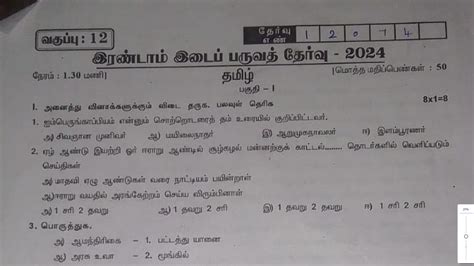 வகுப்பு : 12
தேர்வு எண் 1 2 0 7 4
இரண்டாம் இடைப் பருவத் தேர்வு - 2024
நேரம் : 1.30 மணி தமிழ் மொத்த மதிப்பெண்கள் : 50
பகுதி - I
I. அனைத்து வினாக்களுக்கும் விடை தருக. பலவுள் தெரிக 8x1=8
1. ஐம்பெருங்காப்பியம் என்னும் சொற்றொடரைத் தம் உரையில் குறிப்பிட்டவர்.
அ) சிவஞான முனிவர் ஆ) மயிலைநாதர் இ) ஆறுமுகநாவலர் ஈ) இளம்பூரணர்
2. ஏழ் ஆண்டு இயற்றி ஓர் ஈராறு ஆண்டில் சூழ்கழல் மன்னற்குக் காட்டல்...... தொடர்களில் வெளிப்படும்
செய்திகள்
அ) மாதவி ஏழு ஆண்டுகள் வரை நாட்டியம் பயின்றாள்
ஆ) ஈராறு வயதில் அரங்கேற்றம் செய்ய விரும்பினாள்
அ) 1 சரி 2 தவறு ஆ) 1 தவறு 2 சரி இ) 1 தவறு 2 தவறு ஈ) 1 சரி 2 சரி
3. பொருத்துக.
அ) ஆமந்திரிகை - 1. பட்டத்து யானை
ஆ) அரசு உவா - 2. மூங்கில்